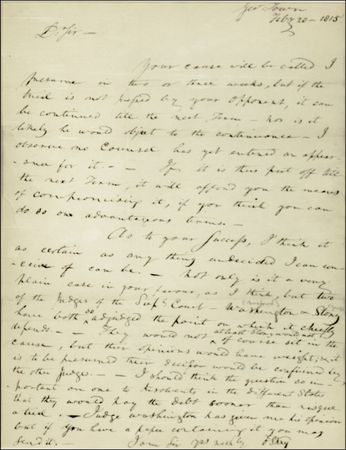 Geo Town
Feby 20 - 1815
Dr Sir -
Your cause will be called I
presume in two or three weeks, but if the
trial is not pressed by your opponent, it can
be continued till the next Term - nor is it
likely he would object to the continuance - I
observe no Counsel has yet entered an appear-
ance for it. - If it is thus put off till
the next Term, it will afford you the means
of compromising it, if you think you can
do so on advantageous terms -
As to your Success, I think it
as certain as any thing undecided I can con-
ceive of can be. - Not only is it a very
plain case in your favour, as I think, but two
of the Judges of the Sup. Court - Washington & Story
have both so adjudged the point on which it chiefly
depends - They would not of course sit in the
cause, but their opinions would have weight, & it
is to be presumed their decision would be confirmed by
the other Judges. - I should think the question so im-
portant an one to Insolvents in the different States
that they would pay the debt sooner than
a bad. - Judge Washington has given me his opinion
but if you have a paper containing it you may
send it. - I am Sir yrs